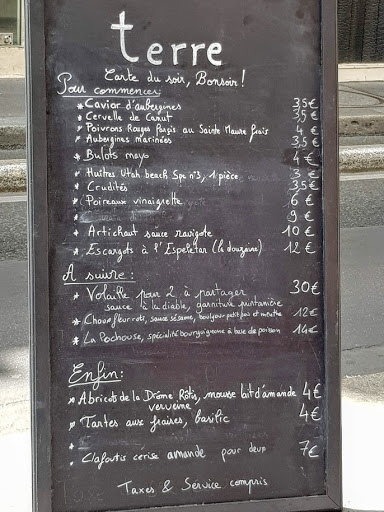 terre
Carte du soir, Bonsoir!
Pour commencer:
* Caviar d'aubergines 3,5€
* Cervelle de Canut 3,5€
* Poivrons Rouges farçis au Sainte Maure frais 4€
* Aubergines marinées 3,5€
* Bulots mayo 4€
* Huîtres Utah beach Spe n°3, 1 pièce 3€
* Crudités 3,5€
* Poireaux vinaigrette 6€
* 9€
* Artichaut sauce ravigote 10€
* Escargots à l'Espeletar (la douzaine) 12€
A suivre:
* Volaille pour 2 à partager 30€
sauce à la diable, garniture printanière
* Choufleur roti, sauce sésame, boulgour petit pois et menthe 12€
* La Pochouse, spécialité bourguignonne à base de poisson 14€
Enfin:
* Abricots de la Drôme Rôtis, mousse lait d'amande 4€
verveine
* Tartes aux fraises, basilic 4€
*
* Clafoutis cerise amande pour deux 7€
Taxes & Service compris